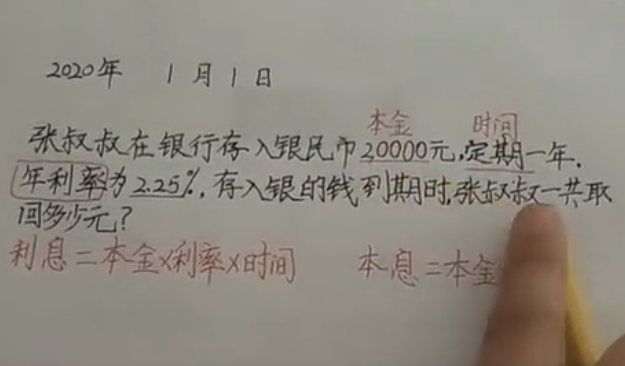 2020年 1月1日
本金 时间
张叔叔在银行存入银民币20000元,定期一年.
年利率为2.25%,存入银的钱到期时,张叔叔一共取
回多少元?
利息=本金×利率×时间 本息=本金